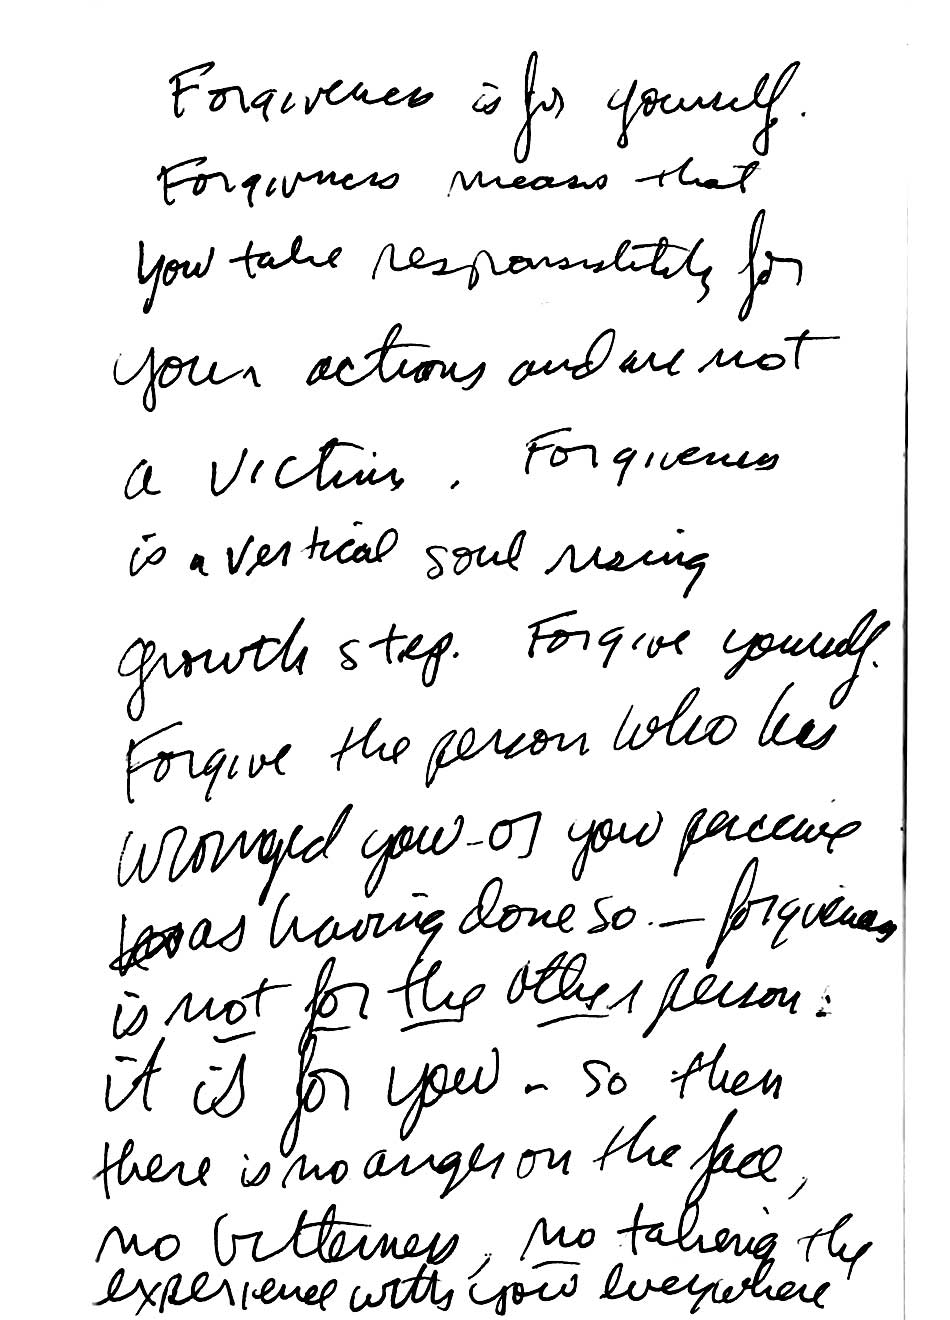 Forgiveness is for yourself.
Forgivness means that
you take responsibility for
your actions and are not
a victim. Forgiveness
is a vertical soul rising
growth step. Forgive yourself.
Forgive the person who has
wronged you - or you perceive
as having done so. — forgiveness
is not for the other person:
it is for you - so then
there is no anger on the face,
no bitterness, no taking the
experience with you everywhere